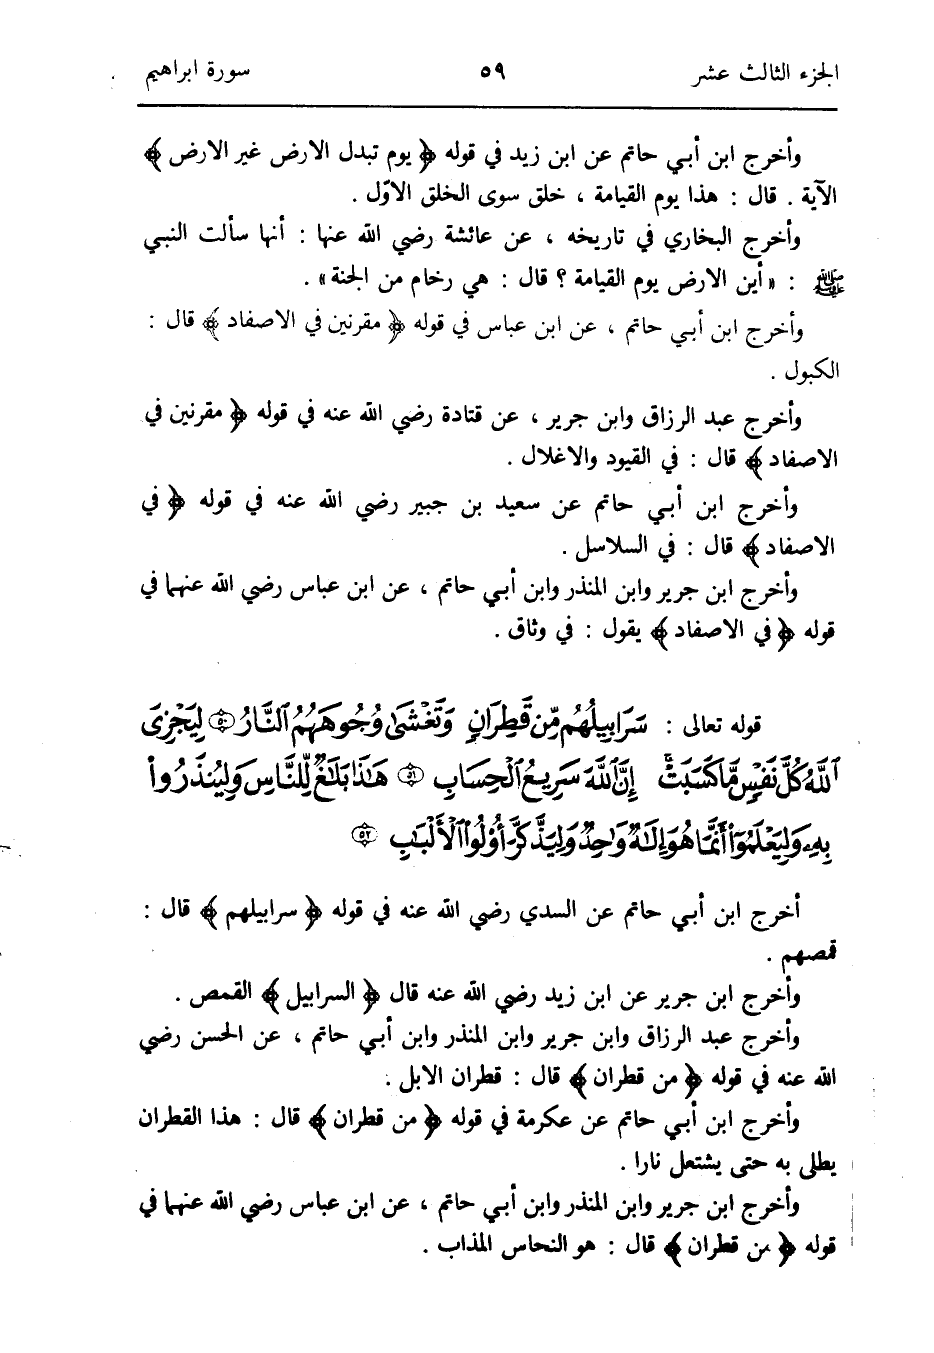 الجزء الثالث عشر ٥٩ سورة ابراهيم
وأخرج ابن أبي حاتم عن ابن زيد في قوله ﴿ يوم تبدل الارض غير الارض ﴾
الآية . قال : هذا يوم القيامة ، خلق سوى الخلق الاوّل .
وأخرج البخاري في تاريخه ، عن عائشة رضي الله عنها : أنها سألت النبي
ﷺ : « أين الارض يوم القيامة ؟ قال : هي رخام من الجنة» .
وأخرج ابن أبي حاتم ، عن ابن عباس في قوله ﴿ مقرنين في الاصفاد ﴾ قال :
الكبول .
وأخرج عبد الرزاق وابن جرير ، عن قتادة رضي الله عنه في قوله ﴿ مقرنين في
الاصفاد ﴾ قال : في القيود والاغلال .
وأخرج ابن أبي حاتم عن سعيد بن جبير رضي الله عنه في قوله ﴿ في
الاصفاد ﴾ قال : في السلاسل .
وأخرج ابن جرير وابن المنذر وابن أبي حاتم ، عن ابن عباس رضي الله عنهما في
قوله ﴿ في الاصفاد ﴾ يقول : في وثاق .
قوله تعالى : سَرَابِيلُهُم مِّن قَطِرَانٍ وَتَغْشَىٰ وُجُوهَهُمُ ٱلنَّارُ ۝٥٠ لِيَجْزِىَ
ٱللَّهُ كُلَّ نَفْسٍ مَّا كَسَبَتْ ۚ إِنَّ ٱللَّهَ سَرِيعُ ٱلْحِسَابِ ۝٥١ هَٰذَا بَلَٰغٌ لِّلنَّاسِ وَلِيُنذَرُوا۟
بِهِۦ وَلِيَعْلَمُوٓا۟ أَنَّمَا هُوَ إِلَٰهٌ وَٰحِدٌ وَلِيَذَّكَّرَ أُو۟لُوا۟ ٱلْأَلْبَٰبِ ۝٥٢
أخرج ابن أبي حاتم عن السدي رضي الله عنه في قوله ﴿ سرابيلهم ﴾ قال :
قمصهم .
وأخرج ابن جرير عن ابن زيد رضي الله عنه قال ﴿ السرابيل ﴾ القمص .
وأخرج عبد الرزاق وابن جرير وابن المنذر وابن أبي حاتم ، عن الحسن رضي
الله عنه في قوله ﴿ من قطران ﴾ قال : قطران الابل .
وأخرج ابن أبي حاتم عن عكرمة في قوله ﴿ من قطران ﴾ قال : هذا القطران
يطلى به حتى يشتعل نارا .
وأخرج ابن جرير وابن المنذر وابن أبي حاتم ، عن ابن عباس رضي الله عنهما في
قوله ﴿ من قطران ﴾ قال : هو النحاس المذاب .